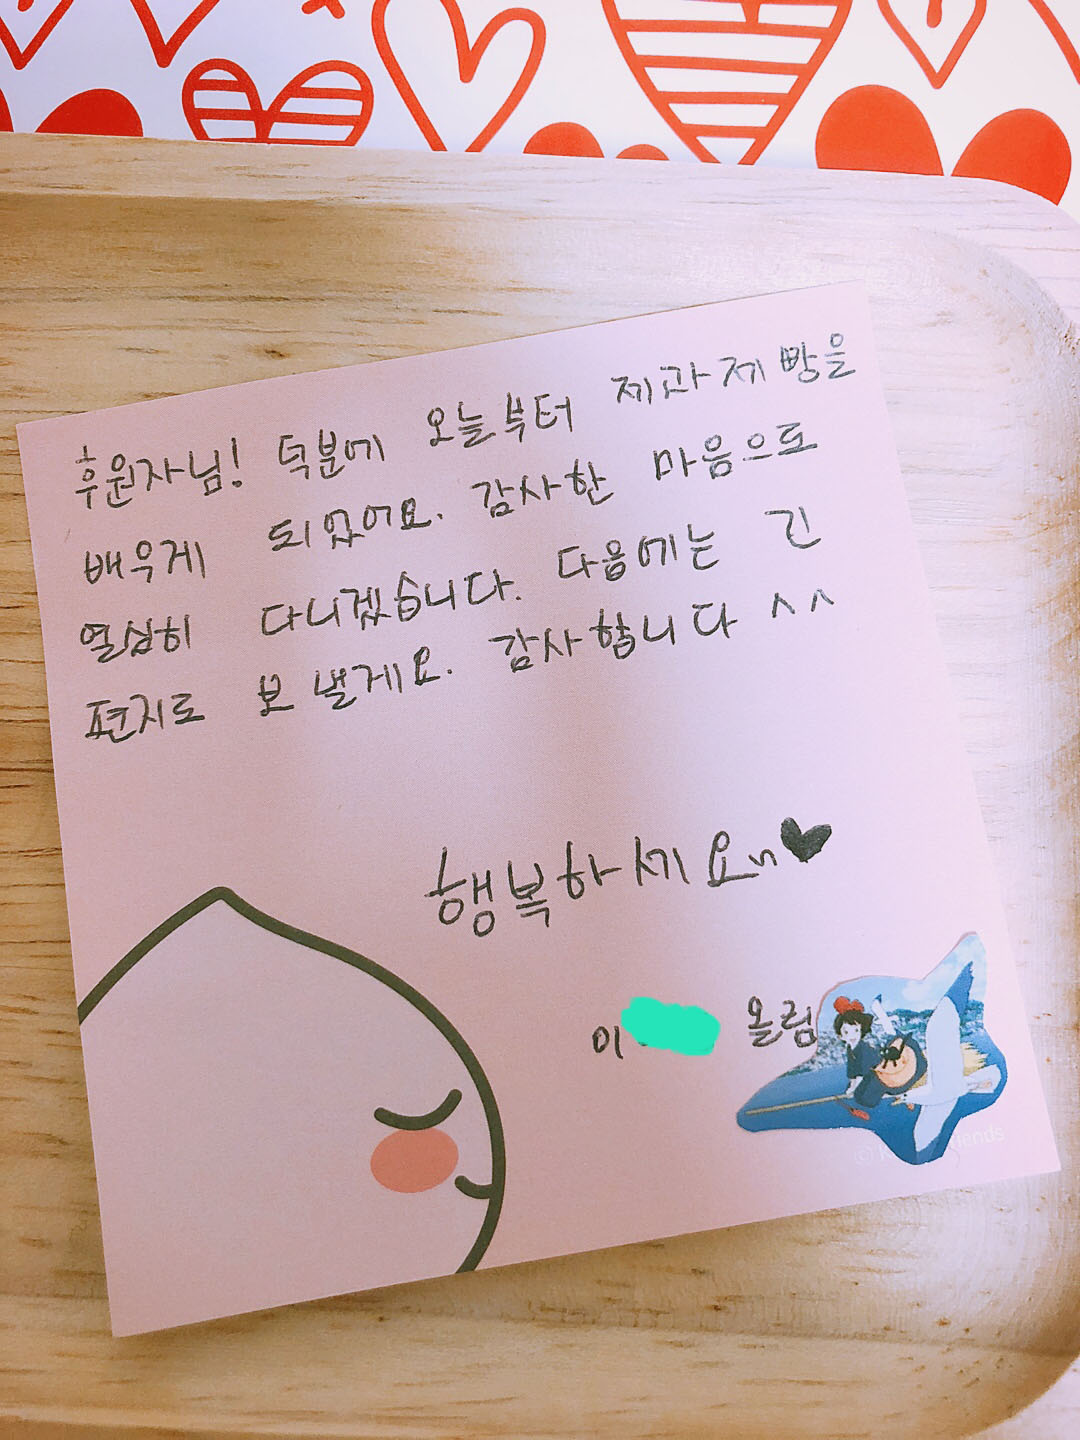 후원자님! 덕분에 오늘부터 제과제빵을
배우게 되었어요. 감사한 마음으로
열심히 다니겠습니다. 다음에는 긴
편지로 보낼게요. 감사합니다 ^^
행복하세요~♥
이 올림
iends